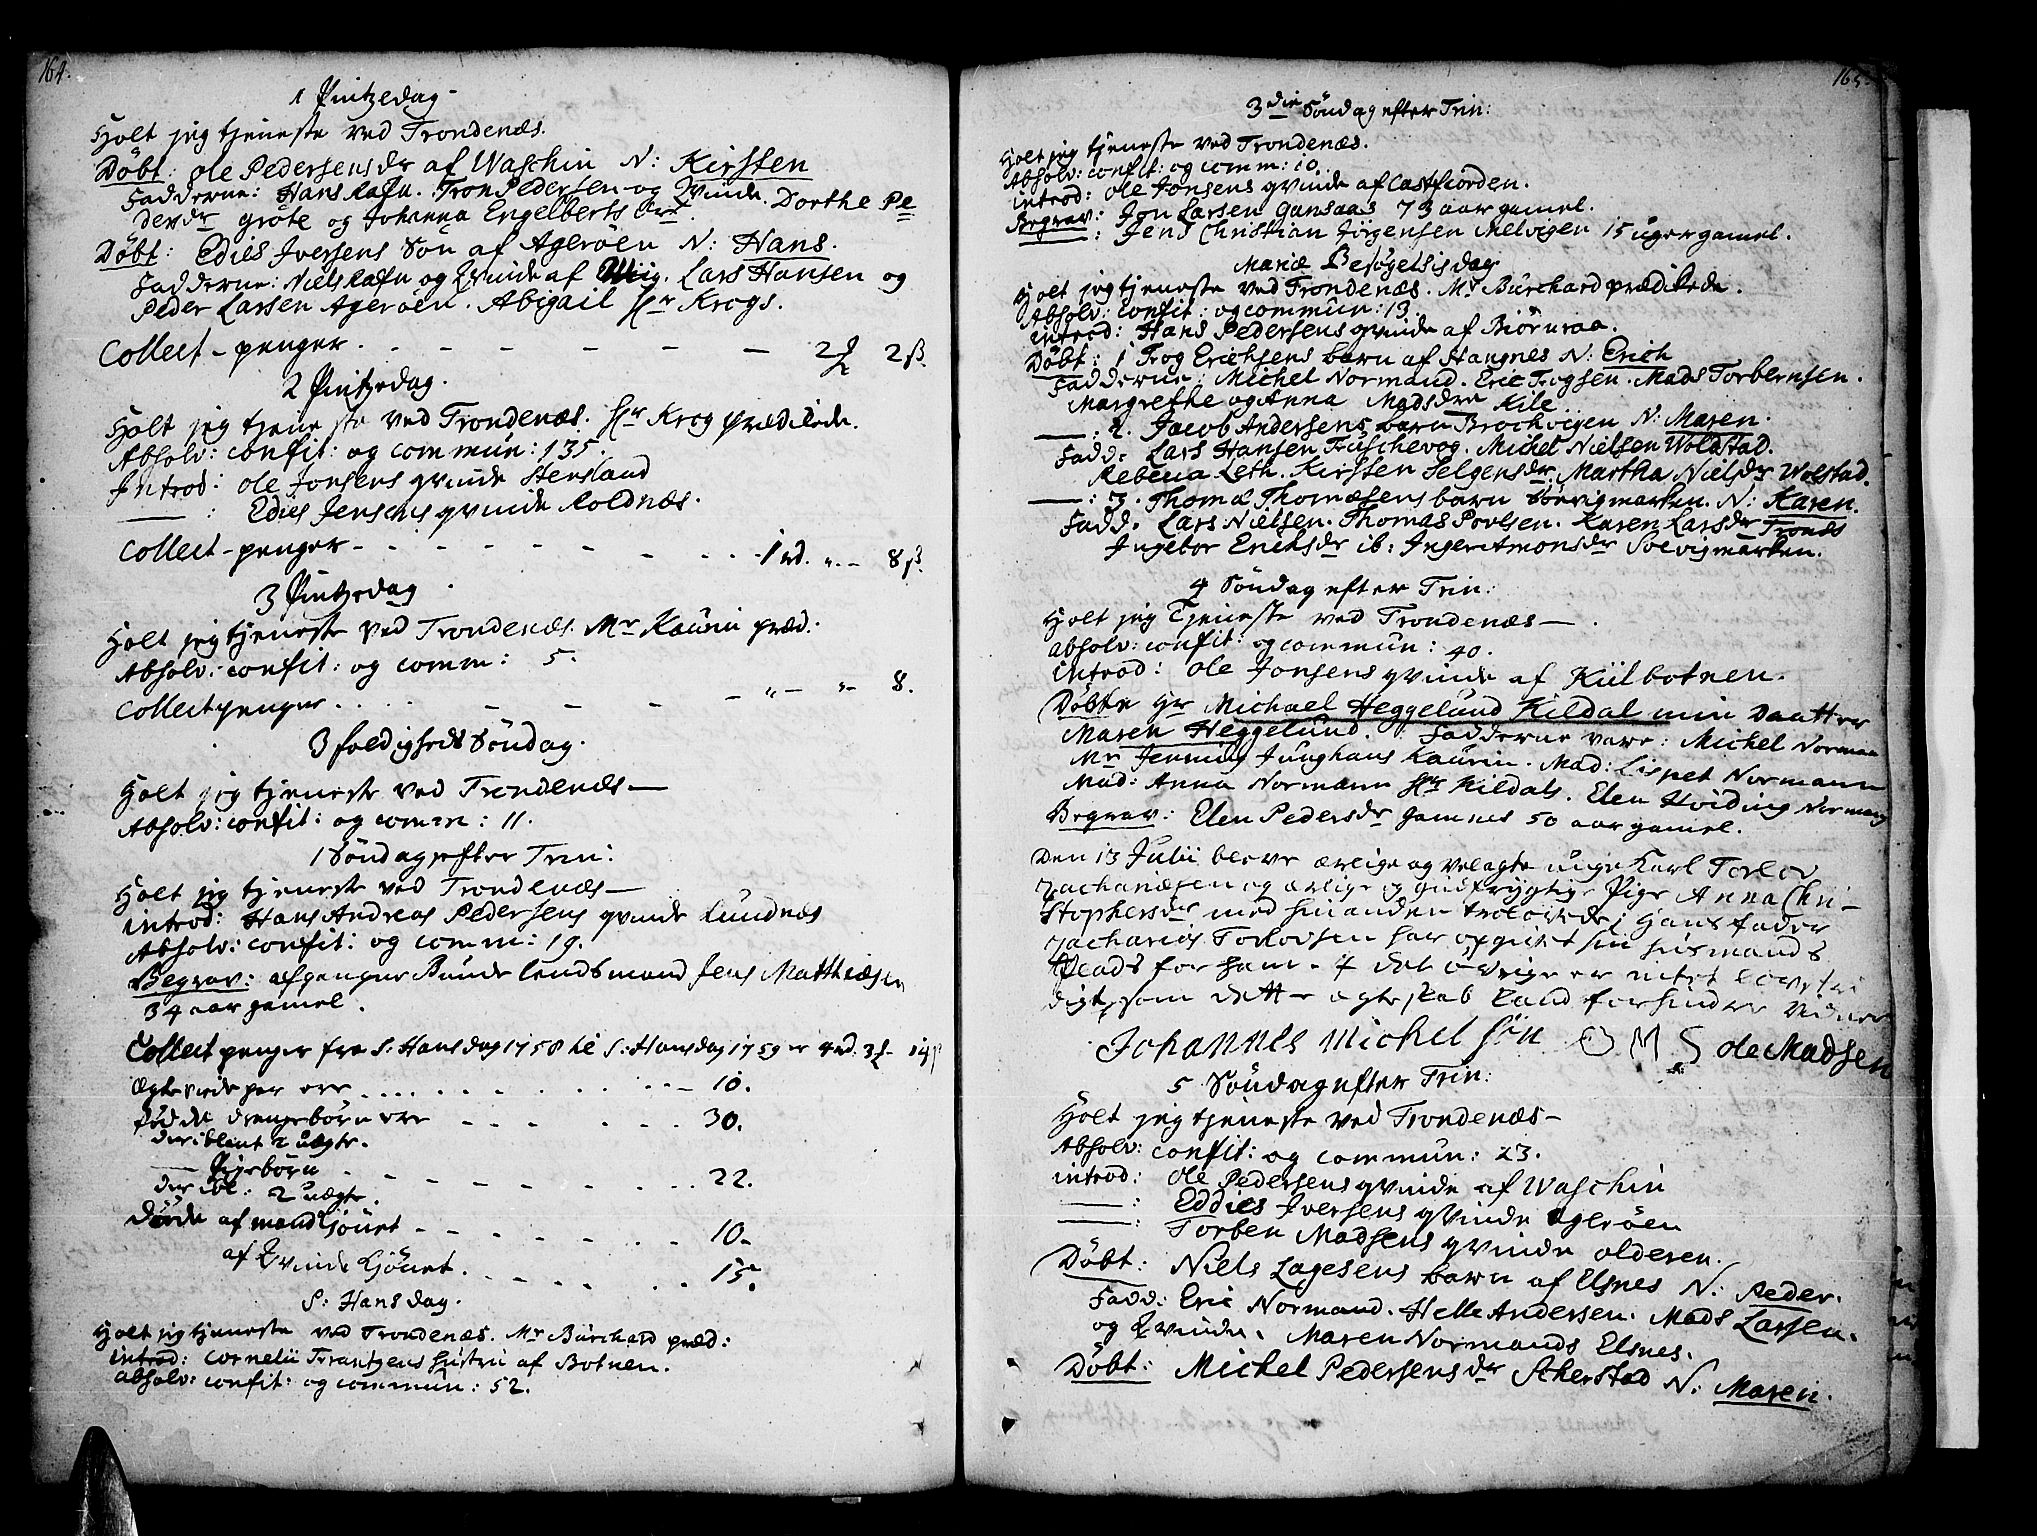 164.
1 Pintzedag
Holt jeg tjeneste ved Trondenæs.
Döbt: Ole Pedersens dr af Waschin N: Kirsten
Fadderne: Hans Rafn. Tron Pedersen og Qvinde. Dorthe Pe
dersdr Grøte og Johanna Engelberts dr.
Döbt: Edies Iversens Søn af Agerøen N: Hans.
Fadderne: Niels Rafn og Qvinde af Lars Hansen og
Peder Larsen Agerøen. Abigail Hr Krogs.
Collect-penger. - - - - - - 2 2ß.
2 Pintzedag.
Holt jeg tjeneste ved Trondenæs. Hr Krog prædikede.
Absolv: confit: og commun: 135.
Introd: Ole Jonsens qvinde Stensland
— : Edies Jensens qvinde Roldnæs.
Collect-penger - - - - - - - 1 rd. „ - 8ß.
3 Pintzedag
Holt jeg tjeneste ved Trondenæs. Mr Kaurin præd.
Absolv: confit: og comm: 5.
Collectpenger. - - - - „ - „ - 8.
3 foldigheds Söndag.
Holt jeg tjeneste ved Trondenæs —
Absolv: confit: og comm: 11.
1 Söndag efter Trin:
Holt jeg tjeneste ved Trondenæs —
introd: Hans Andreas Pedersens qvinde Lundnæs
Absolv: confit: og comm: 19.
Begrav: afgangne Bonde lendsmand Jens Matthiæsen
34 aar gamel.
Collect penger fra S: Hansdag 1758 til S: Hansdag 1759 er 4 rd. 3
Ægteviede par ere . . . . . 10.
födde drengebörn ere - - - 30.
der iblant 2 uægte.
— Pigebörn - - - - 22.
der ibl: 2 uægte.
Döde af mandkjönet - - - 10.
af Qvinde kjönet. - - - 15.
S: Hans dag.
Holt jeg tjeneste ved Trondenæs. Mr Burchard præd:
introd: Cornelii Frantzens hustru af Botnen.
absolv: confit: og commun: 52.
165.
3die Söndag efter Trin:
Holt jeg tjeneste ved Trondenæs.
Absolv: confit: og comm: 10.
introd: Ole Jonsens qvinde af Castfiorden.
Begrav: Jon Larsen Gansaas 73 aar gamel.
— : Jens Christian Jörgensen Melvigen 15 uger gamel.
Mariæ Besøgelsis dag
Holt jeg tjeneste ved Trondenæs. Mr Burchard prædikede.
Absolv: confit: og commun: 13
introd: Hans Pedersens qvinde af Biörnraa.
Döbt: 1 Trog Erichsens barn af Hangnes N: Erich
Fadderne: Michel Normand. Eric Trogsen. Mads Torbernsen.
Margrethe og Anna Madsdru Kile
— : 2. Jacob Andersens barn Brochvigen N: Maren.
Fadd. Lars Hansen Fuschevog. Michel Nielsen Woldstad.
Rebecca Leth. Kirsten Selgensdr. Martha Nielsdr Wolstad.
— : 3. Thomæ Thomæsens barn Sörvigmarken. N: Karen.
Fadd. Lars Nielsen. Thomas Povlsen. Karen Larsdr Tronds
Ingebor Erichsdr ib: Inger Amonsdr Solvigmarken.
4 Söndag efter Trin:
Holt jeg Tjeneste ved Trondenæs —
absolv: confit: og commun: 40.
introd: Ole Jonsens qvinde af Kiilbotnen.
Döbte Hr Michael Heggelund Kildal min Daatter
Maren Heggelund. Fadderne vare: Michel Norman
Mr Jenning Junghans Kaurin. Mad: Lisbet Normann
Mad: Anna Normann Hr Kildals. Elen Hvīding Normans
Begrav: Elen Pedersdr Gamnes 50 aar gamel.
Den 13 Julii bleve ærlige og velagte unge Karl Torlov
Zachariæsen og ærlige og gudfrygtige Pige Anna Chri-
stophersdr med hinanden troloved; hans fader
Zacharias Torlovsen har opgivet sin huusmands
Plads for ham. I det övrige er intet lovstri
digt, som dette ægteskab kand forhindre Vidner
Johannes Michelsön O M S Ole Madsen
5 Söndag efter Trin:
Holt jeg tjeneste ved Trondenæs —
Absolv: confit: og commun: 23.
introd: Ole Pedersens qvinde af Waschin
— : Eddies Iversens qvinde Agerøen
— : Torben Madsens qvinde Olderen.
Döbt: Niels Lagesens barn af Elsnes N: Peder.
Fadd: Eric Normand. Helle Andersen. Mads Larsen.
og Qvinde. Maren Normands Elsnes.
Döbt: Michel Pedersens dr Scherstad N: Maren.